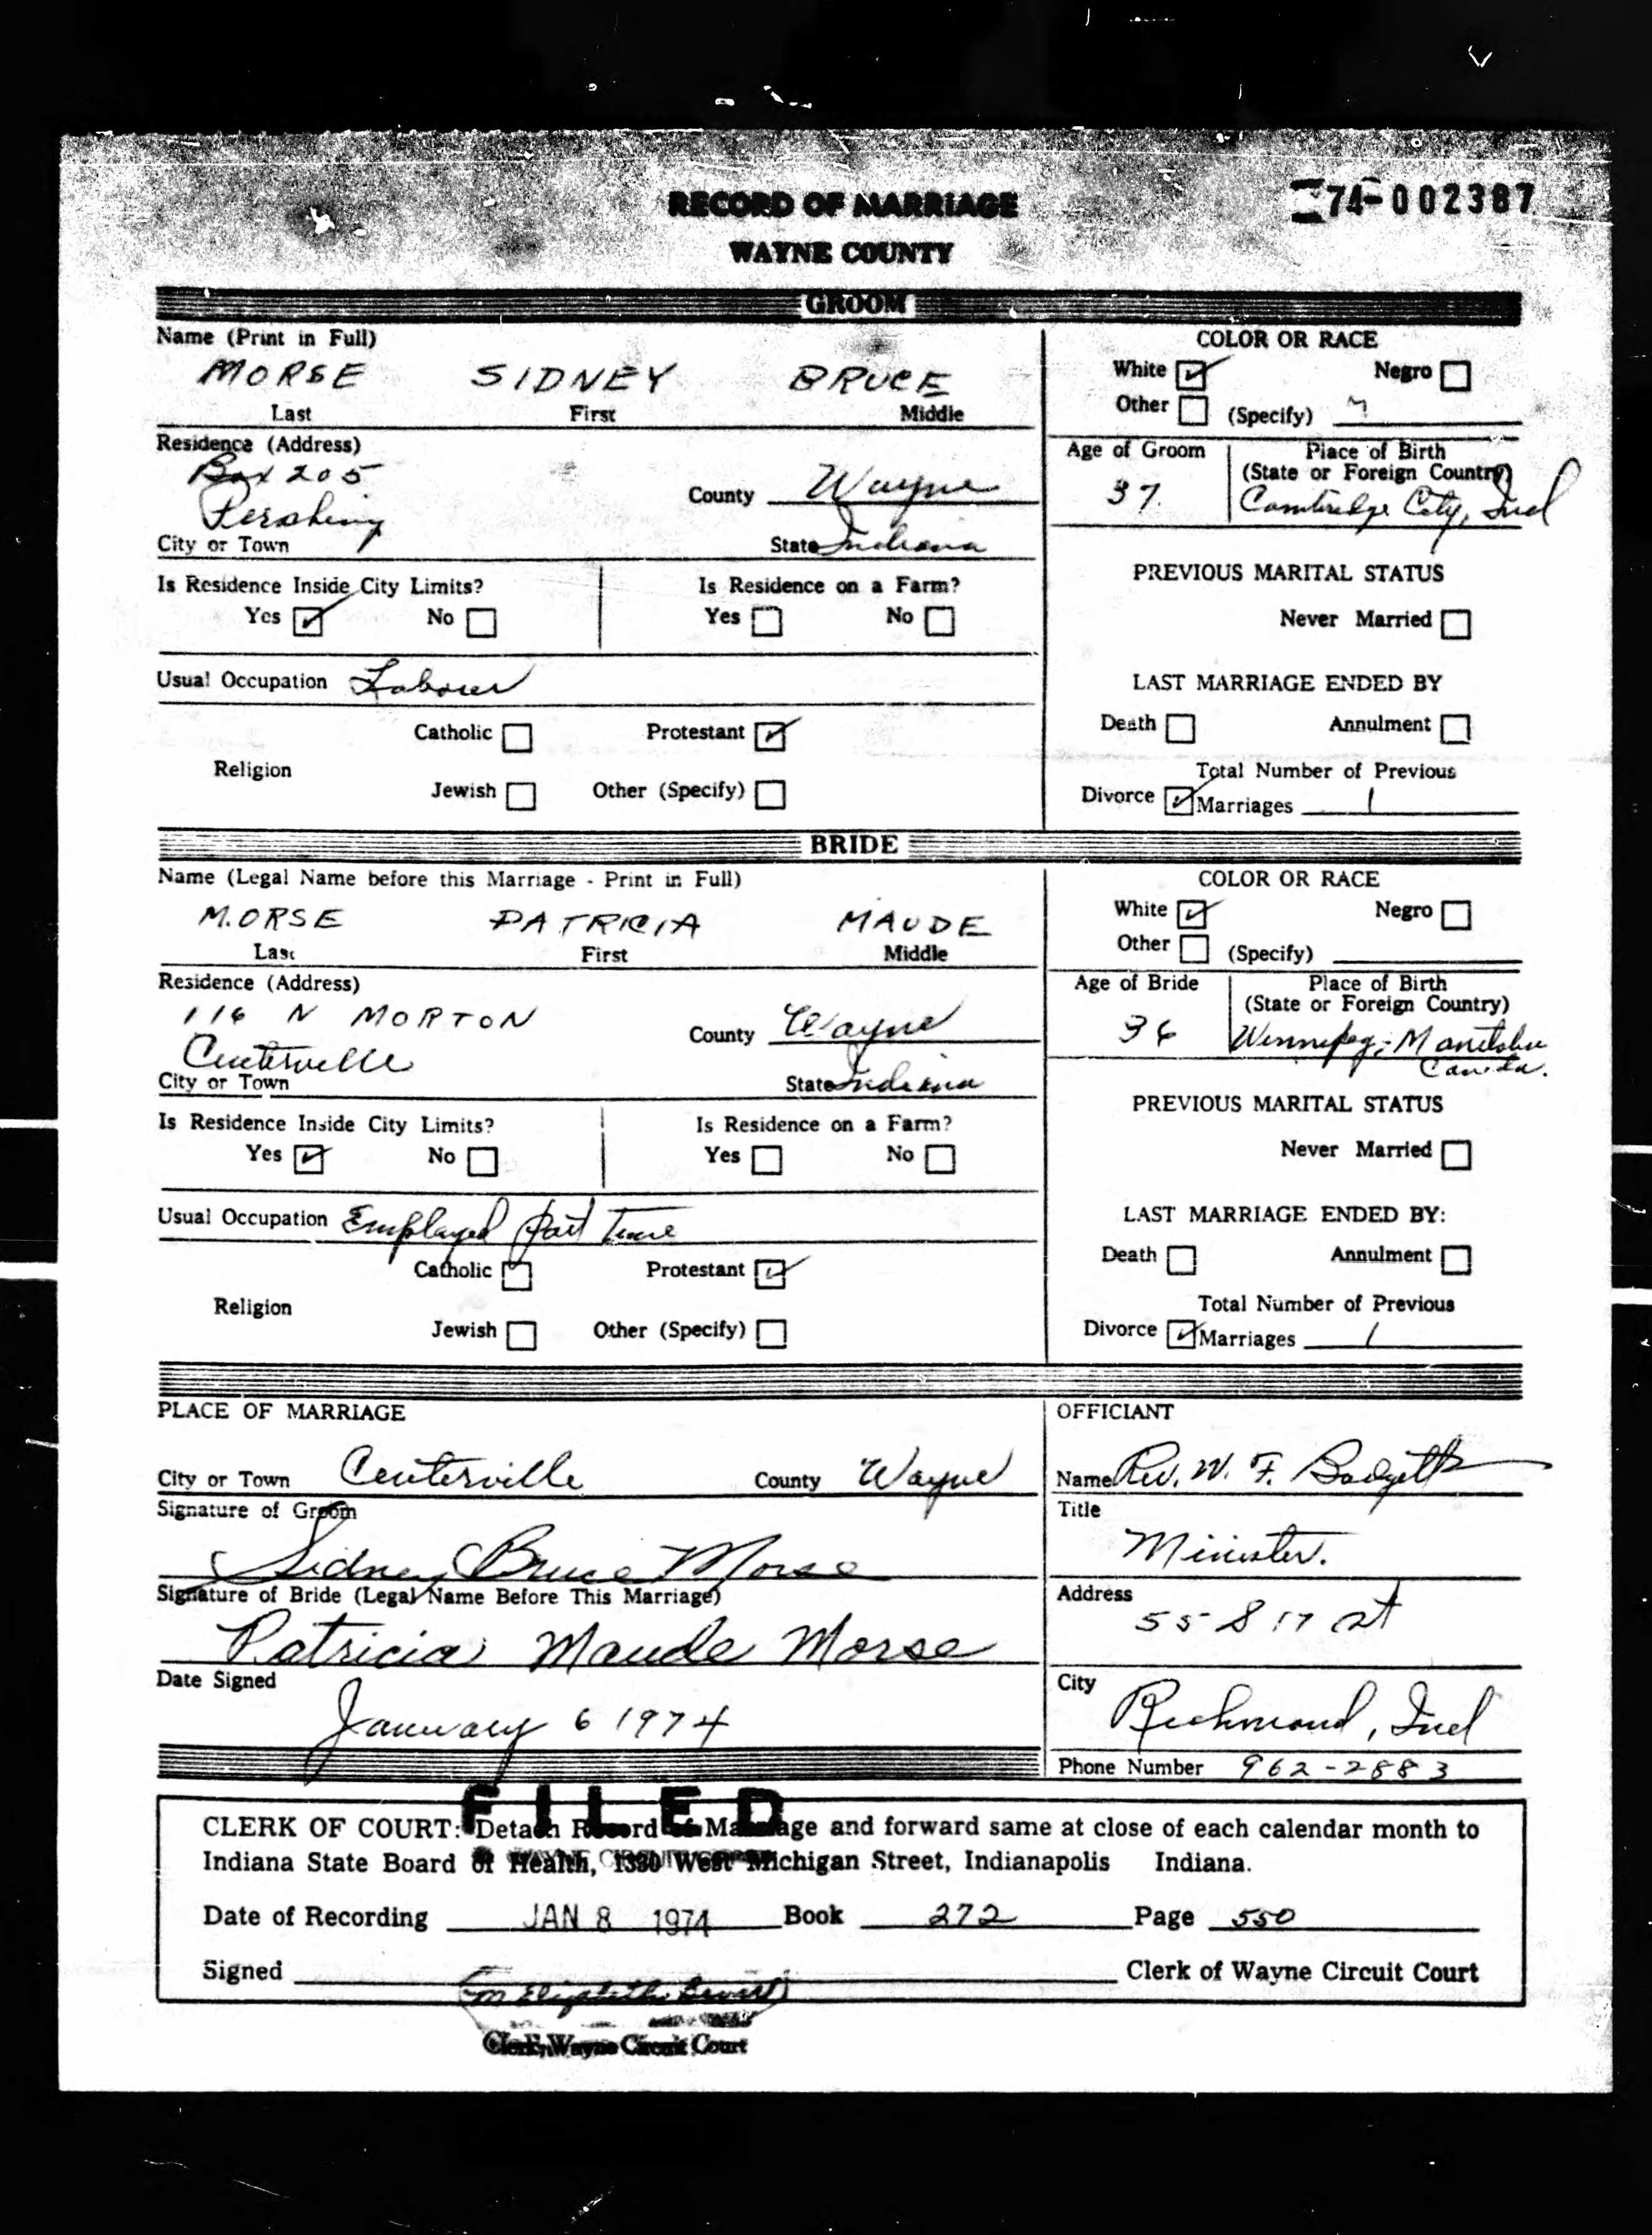 RECORD OF MARRIAGE
74-002387
WAYNE COUNTY
GROOM
Name (Print in Full)
MORSE SIDNEY BRUCE
Last First Middle
COLOR OR RACE
White Negro
Other (Specify)
Residence (Address)
Box 205
Pershing
County Wayne
City or Town
State Indiana
Age of Groom
37
Place of Birth
(State or Foreign Country)
Cambridge City, Ind
Is Residence Inside City Limits?
Yes No
Is Residence on a Farm?
Yes No
PREVIOUS MARITAL STATUS
Never Married
Usual Occupation Laborer
LAST MARRIAGE ENDED BY
Death Annulment
Total Number of Previous
Divorce Marriages 1
Religion
Catholic Protestant
Jewish Other (Specify)
BRIDE
Name (Legal Name before this Marriage - Print in Full)
MORSE PATRICIA MAUDE
Last First Middle
COLOR OR RACE
White Negro
Other (Specify)
Residence (Address)
116 N MORTON
Centerville
County Wayne
City or Town
State Indiana
Age of Bride
36
Place of Birth
(State or Foreign Country)
Winnipeg, Manitoba
Canada.
Is Residence Inside City Limits?
Yes No
Is Residence on a Farm?
Yes No
PREVIOUS MARITAL STATUS
Never Married
Usual Occupation Employed part time
LAST MARRIAGE ENDED BY:
Death Annulment
Total Number of Previous
Divorce Marriages 1
Religion
Catholic Protestant
Jewish Other (Specify)
PLACE OF MARRIAGE
City or Town Centerville County Wayne
Signature of Groom
Sidney Bruce Morse
Signature of Bride (Legal Name Before This Marriage)
Patricia Maude Morse
Date Signed
January 6 1974
OFFICIANT
Name Rev. W. F. Badgett
Title
Minister.
Address
55 S 17 St
City
Richmond, Ind
Phone Number 962-2883
FILED
CLERK OF COURT: Detach Record of Marriage and forward same at close of each calendar month to
Indiana State Board of Health, 1330 West Michigan Street, Indianapolis Indiana.
Date of Recording JAN 8 1974 Book 272 Page 550
Signed Clerk of Wayne Circuit Court
M Elizabeth
Clerk, Wayne Circuit Court